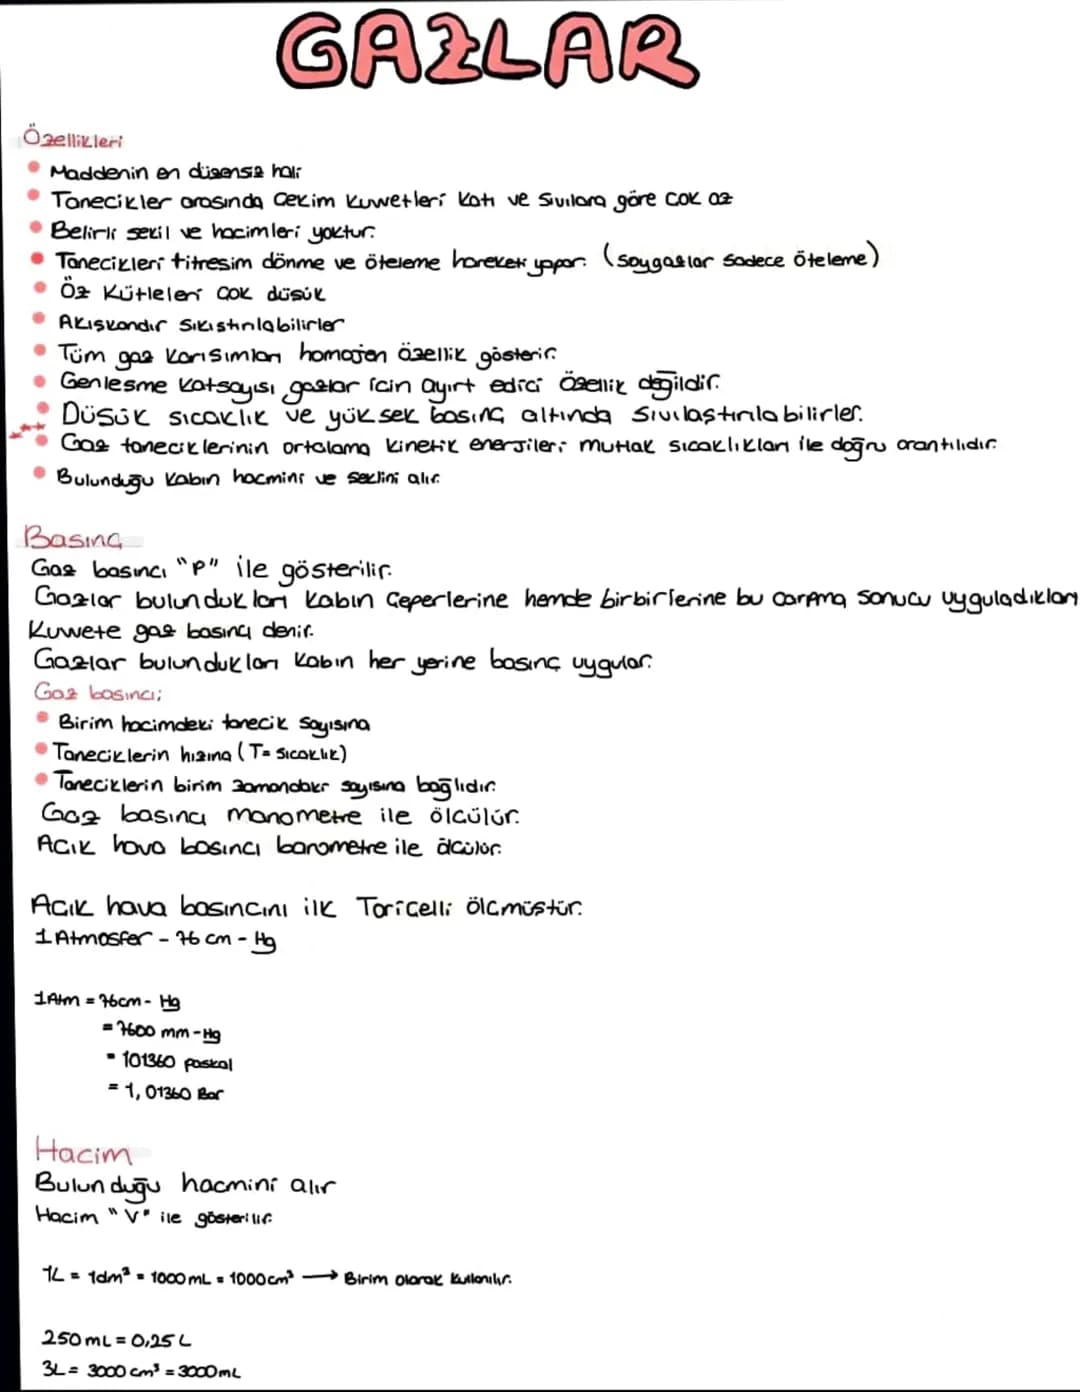 GAZLAR
Özellikleri
Maddenin en düzensiz hali
Tanecikler arasında Çekim Kuvvetleri Katı ve Sıvılara göre ÇOK az
Belirli şekil ve hacimleri yoktur.
Tanecikleri titreşim dönme ve öteleme hareketi yapar. (soygazlar sadece öteleme)
Öz Kütleleri ÇOK düşük
Akışkandır Sıkıştırılabilirler
Tüm gaz karışımları homojen özellik gösterir.
Genleşme katsayısı gazlar için ayırt edici Özellik değildir.
DÜŞÜK sıcaklık ve yüksek basınç altında Sıvılaştırılabilirler.
Gaz taneciklerinin ortalama kinetik enerjileri mutlak sıcaklıkları ile doğru orantılıdır.
Bulunduğu Kabın hacmini ve şeklini alır.
Basınç
Gaz basıncı "P" ile gösterilir.
Gazlar bulundukları kabın Çeperlerine hemde birbirlerine bu çarpma sonucu uyguladıkları
Kuvvete gaz basıncı denir.
Gazlar bulundukları Kabın her yerine basınç uygular.
Gaz basıncı;
Birim hacimdeki tanecik sayısına
Taneciklerin hızına (T= Sıcaklık)
Taneciklerin birim zamandaki sayısına bağlıdır.
Gaz basıncı manometre ile ölçülür.
Açık hava basıncı barometre ile ölçülür.
Açık hava basıncını ilk Toriçelli ölçmüştür.
1 Atmosfer - 76 cm - Hg
1Atm = 76cm - Hg
= 7600 mm - Hg
= 101360 paskal
= 1,01360 Bar
Hacim
Bulunduğu hacmini alır
Hacim "V" ile gösterilir.
1L = 1dm³ = 1000 mL = 1000 cm³ → Birim olarak kullanılır.
250 mL = 0,25 L
3L = 3000 cm³ = 3000 mL